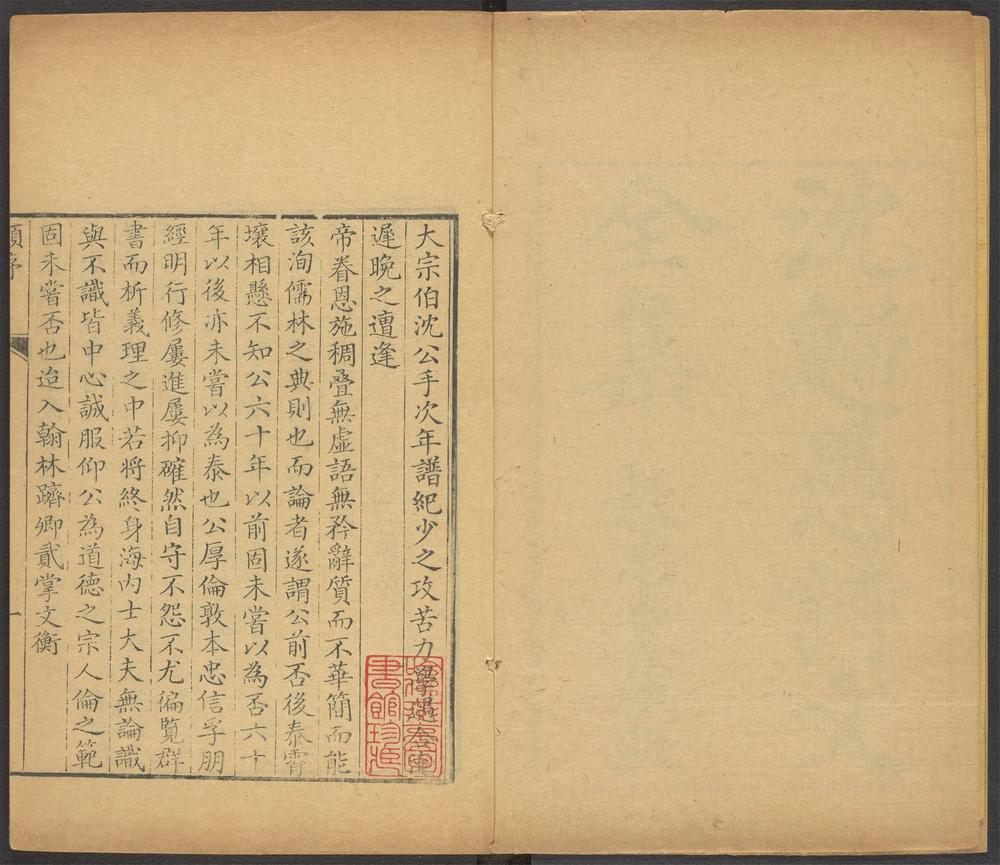 大宗伯沈公手次年譜紀少之攻苦力學遇
遲晚之遭逢
帝眷恩施稠疊無虛語無矜辭質而不華簡而能
該洵儒林之典則也而論者遂謂公前否後泰霄
壤相懸不知公六十年以前固未嘗以為否六十
年以後亦未嘗以為泰也公厚倫敦本忠信孚朋
經明行修屢進屢抑確然自守不怨不尤徧覧群
書而析義理之中若將終身海內士大夫無論識
與不識皆中心誠服仰公為道德之宗人倫之範
固未嘗否也迨入翰林躋卿貳掌文衡
顧序
一
書館珍藏